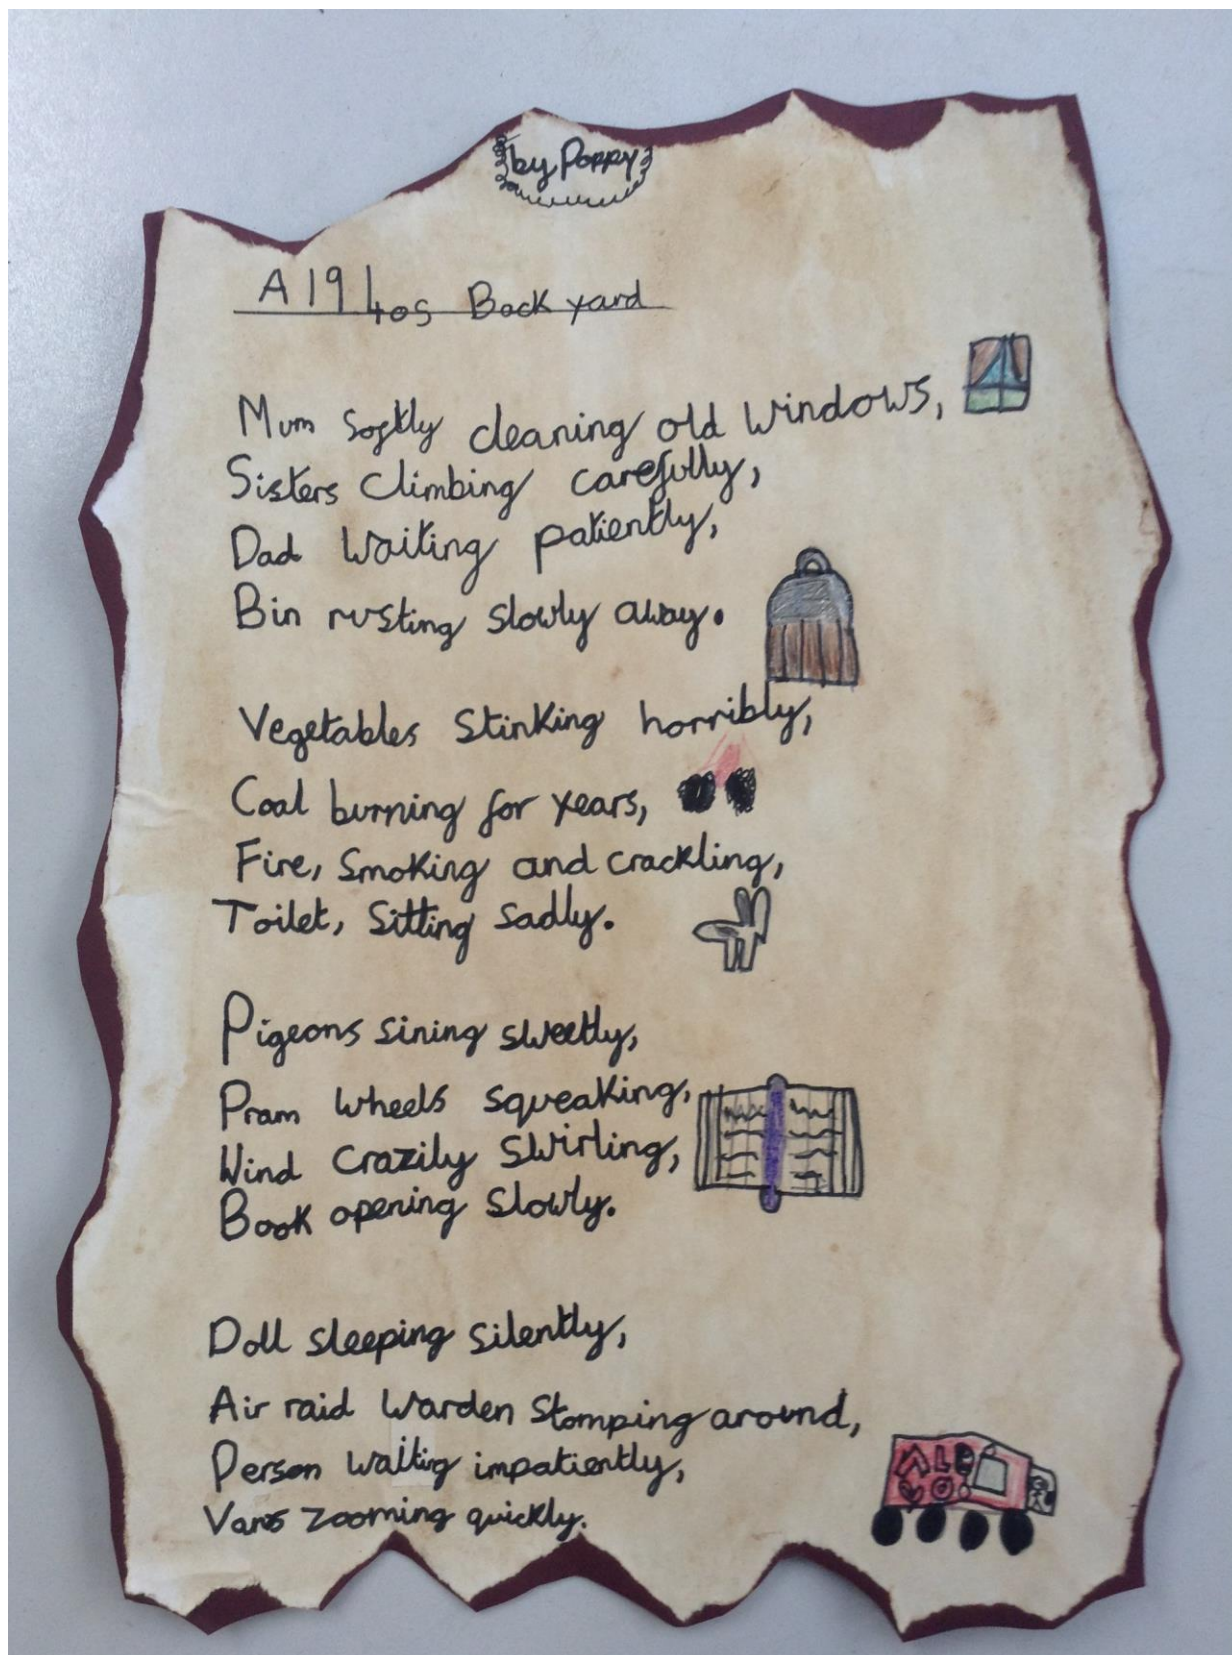 by Poppy
A 1940s Back yard
Mum softly cleaning old windows,
Sisters Climbing carefully,
Dad Waiting patiently,
Bin rusting slowly away.
Vegetables Stinking horribly,
Coal burning for years,
Fire, Smoking and crackling,
Toilet, Sitting sadly.
Pigeons sining sweetly,
Pram wheels squeaking,
Wind Crazily Swirling,
Book opening Slowly.
Doll sleeping silently,
Air raid Warden Stomping around,
Person waiting impatiently,
Vans zooming quickly.